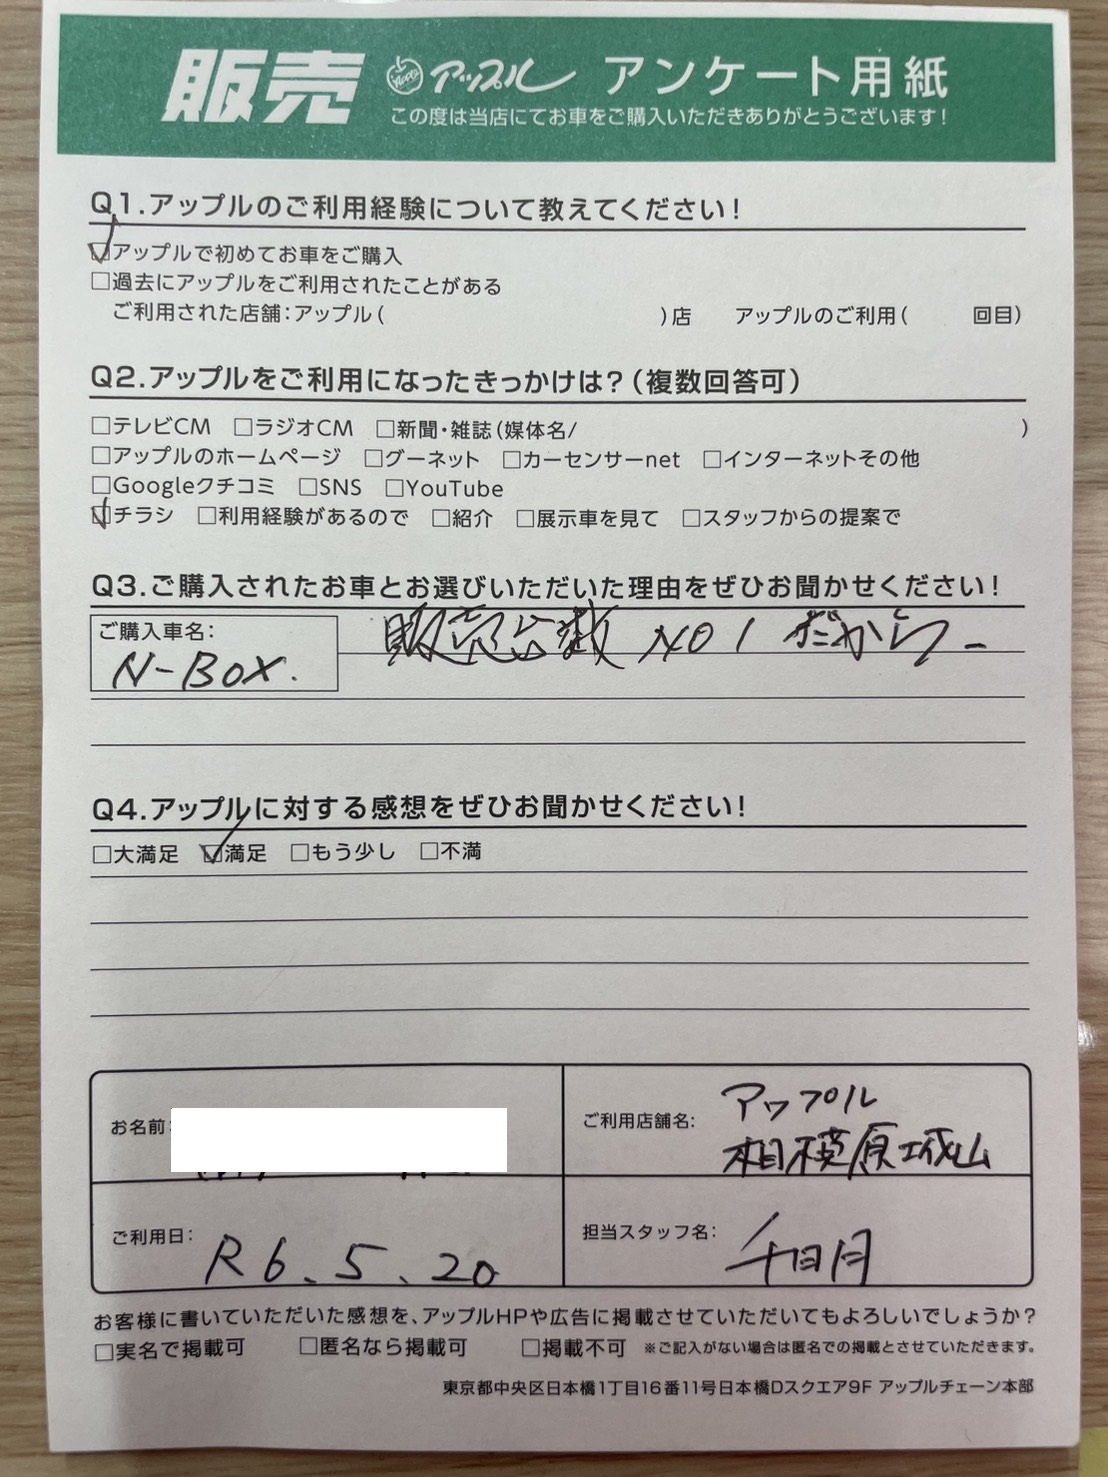 販売 アップル アンケート用紙
この度は当店にてお車をご購入いただきありがとうございます!
Q1.アップルのご利用経験について教えてください!
☑アップルで初めてお車をご購入
□過去にアップルをご利用されたことがある
ご利用された店舗:アップル( )店 アップルのご利用( 回目)
Q2.アップルをご利用になったきっかけは?(複数回答可)
□テレビCM □ラジオCM □新聞・雑誌(媒体名/ )
□アップルのホームページ □グーネット □カーセンサーnet □インターネットその他
□Googleクチコミ □SNS □YouTube
☑チラシ □利用経験があるので □紹介 □展示車を見て □スタッフからの提案で
Q3.ご購入されたお車とお選びいただいた理由をぜひお聞かせください!
ご購入車名:
N-BOX.
販売台数 NO1 だから-
Q4.アップルに対する感想をぜひお聞かせください!
□大満足 ☑満足 □もう少し □不満
お名前:
ご利用店舗名: アップル
相模原城山
ご利用日: R6.5.20
担当スタッフ名:
お客様に書いていただいた感想を、アップルHPや広告に掲載させていただいてもよろしいでしょうか?
□実名で掲載可 □匿名なら掲載可 □掲載不可 ※ご記入がない場合は匿名での掲載とさせていただきます。
東京都中央区日本橋1丁目16番11号日本橋Dスクエア9F アップルチェーン本部